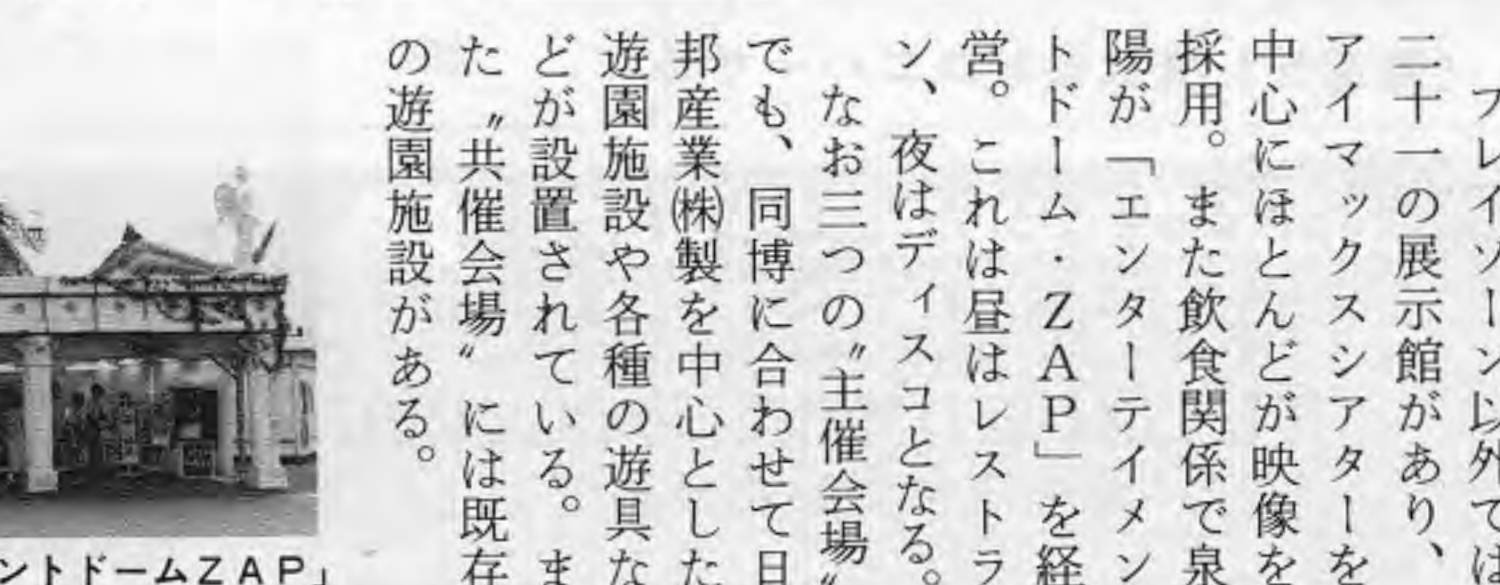 プレイゾーン以外では
二十一の展示館があり、
アイマックスシアターを
中心にほとんどが映像を
採用。また飲食関係で泉
陽が「エンターテイメン
トドーム・ZAP」を経
営。これは昼はレストラ
ン、夜はディスコとなる。
なお三つの〝主催会場〟
でも、同博に合わせて日
邦産業㈱製を中心とした
遊園施設や各種の遊具な
どが設置されている。ま
た〝共催会場〟には既存
の遊園施設がある。
ントドームZAP」